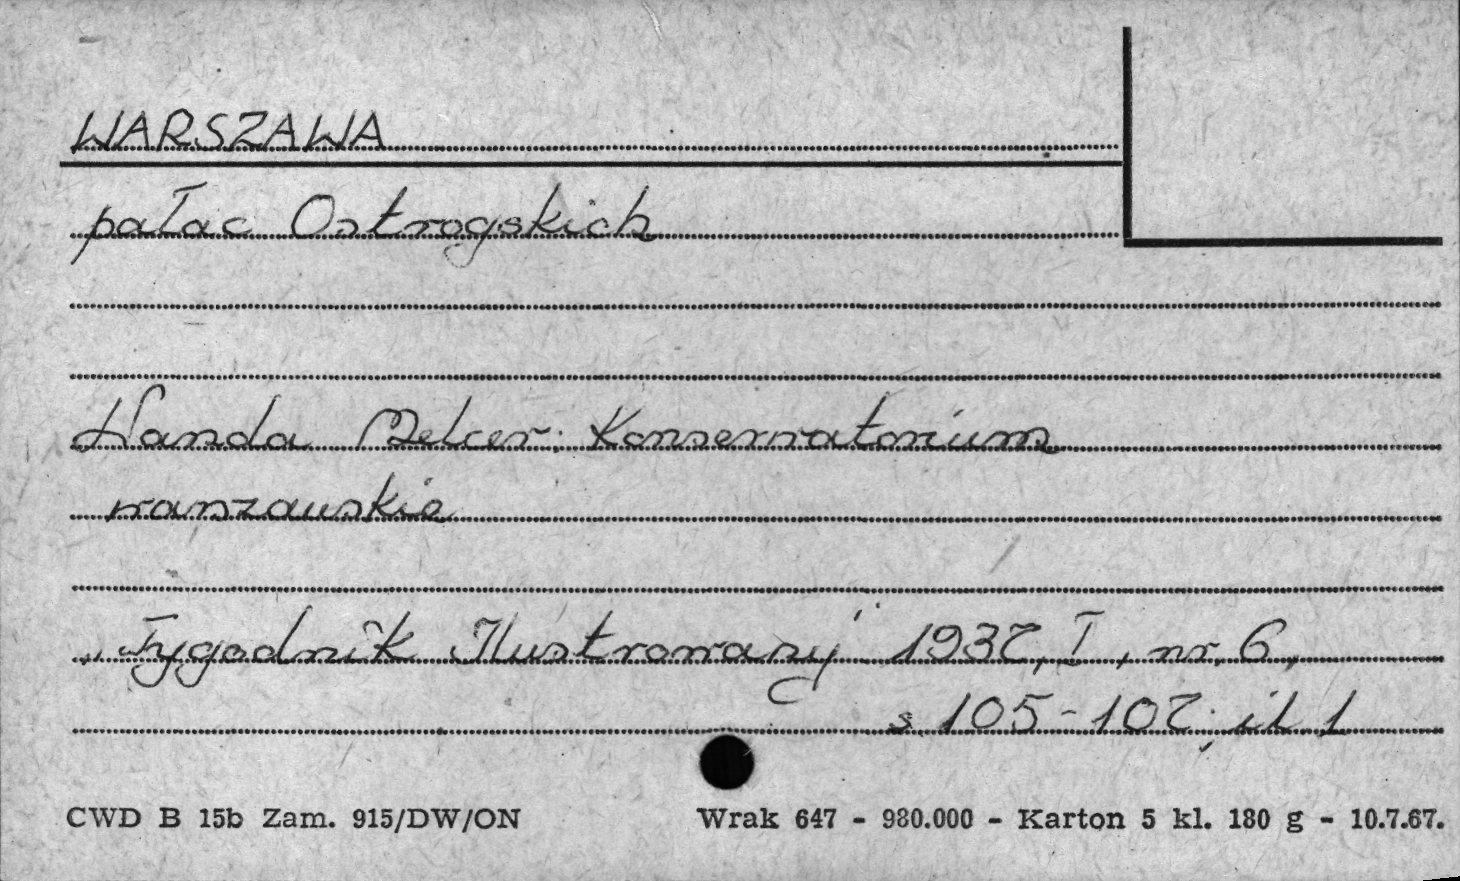 WARSZAWA
pałac Ostrogskich
Wanda Melcer: Konserwatorium
warszawskie
„Tygodnik Ilustrowany" 1937, I, nr 6,
s. 105-107; il 1
CWD B 15b Zam. 915/DW/ON Wrak 647 - 980.000 - Karton 5 kl. 180 g - 10.7.67.